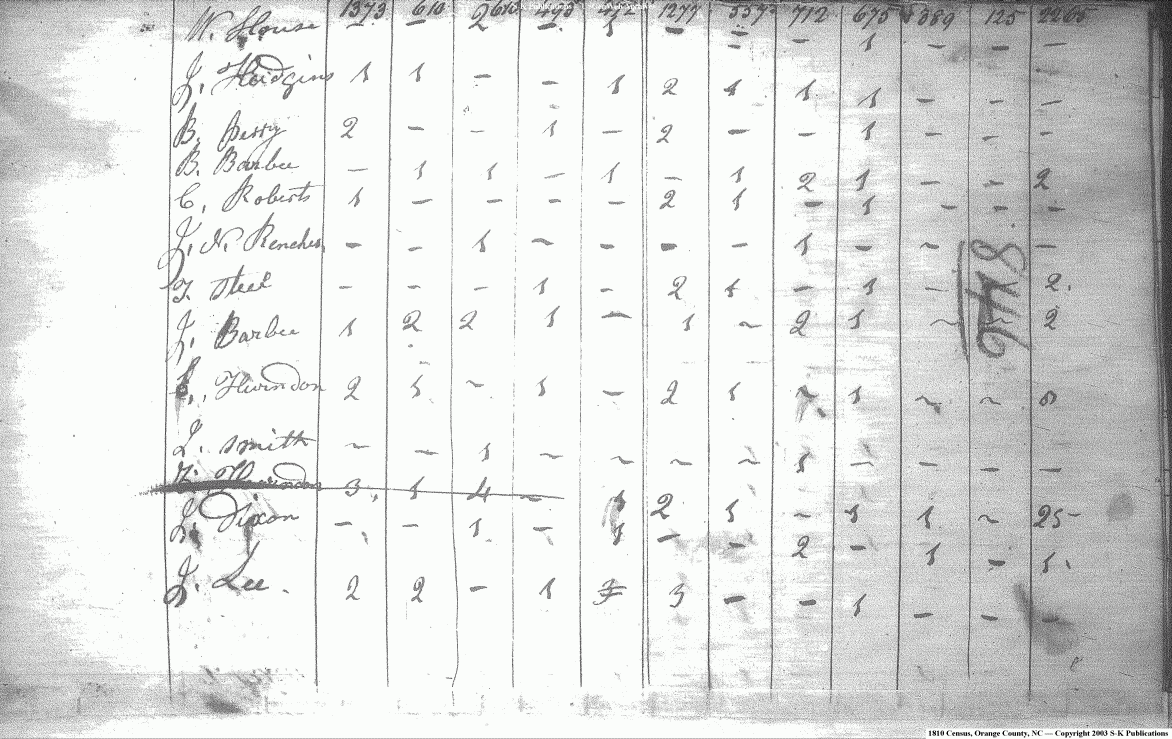 1373 610 1277 712 675 389 125 2265
W. House - - 2 - 1 - - - 1 - - -
J. Hodgins 1 1 - - 1 2 1 1 1 - - -
B. Perry 2 - - 1 - 2 - - 1 - - -
B. Barbee - 1 1 - 1 - 1 2 1 - - 2
C. Roberts 1 - - - - 2 1 - 1 - - -
J. N. - - 1 ~ - - - 1 - ~ -
T. Steel - - - 1 - 2 1 - 1 - 2.
J. Barbee 1 2 2 1 - 1 ~ 2 1 ~ 2
9448
Herndon 2 1 ~ 1 - 2 1 ~ 1 ~ ~ 8
L. Smith ~ - 1 ~ ~ ~ ~ 1 - - -
Z. Herndon 3, 1 4 - 1 2 1 - 1 1 ~ 25
J. Dixon - - 1 - 1 - - 2 - 1 - 1.
J. Lee. 2 2 - 1 3 - - 1 - - -
1810 Census, Orange County, NC — Copyright 2003 S-K Publications